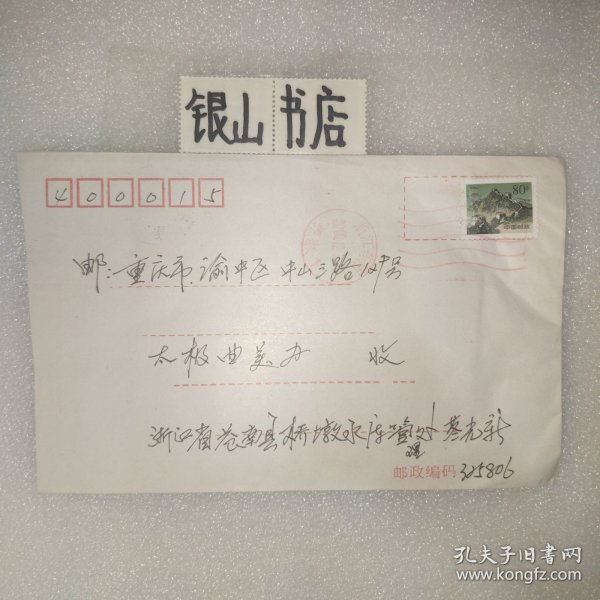 银山书店
400015
80分
中国邮政
邮:重庆市渝中区中山三路
太极曲美办 收
浙江省苍南县桥墩水库管理处 蔡尤新
邮政编码 325806
孔夫子旧书网
www.kongfz.com